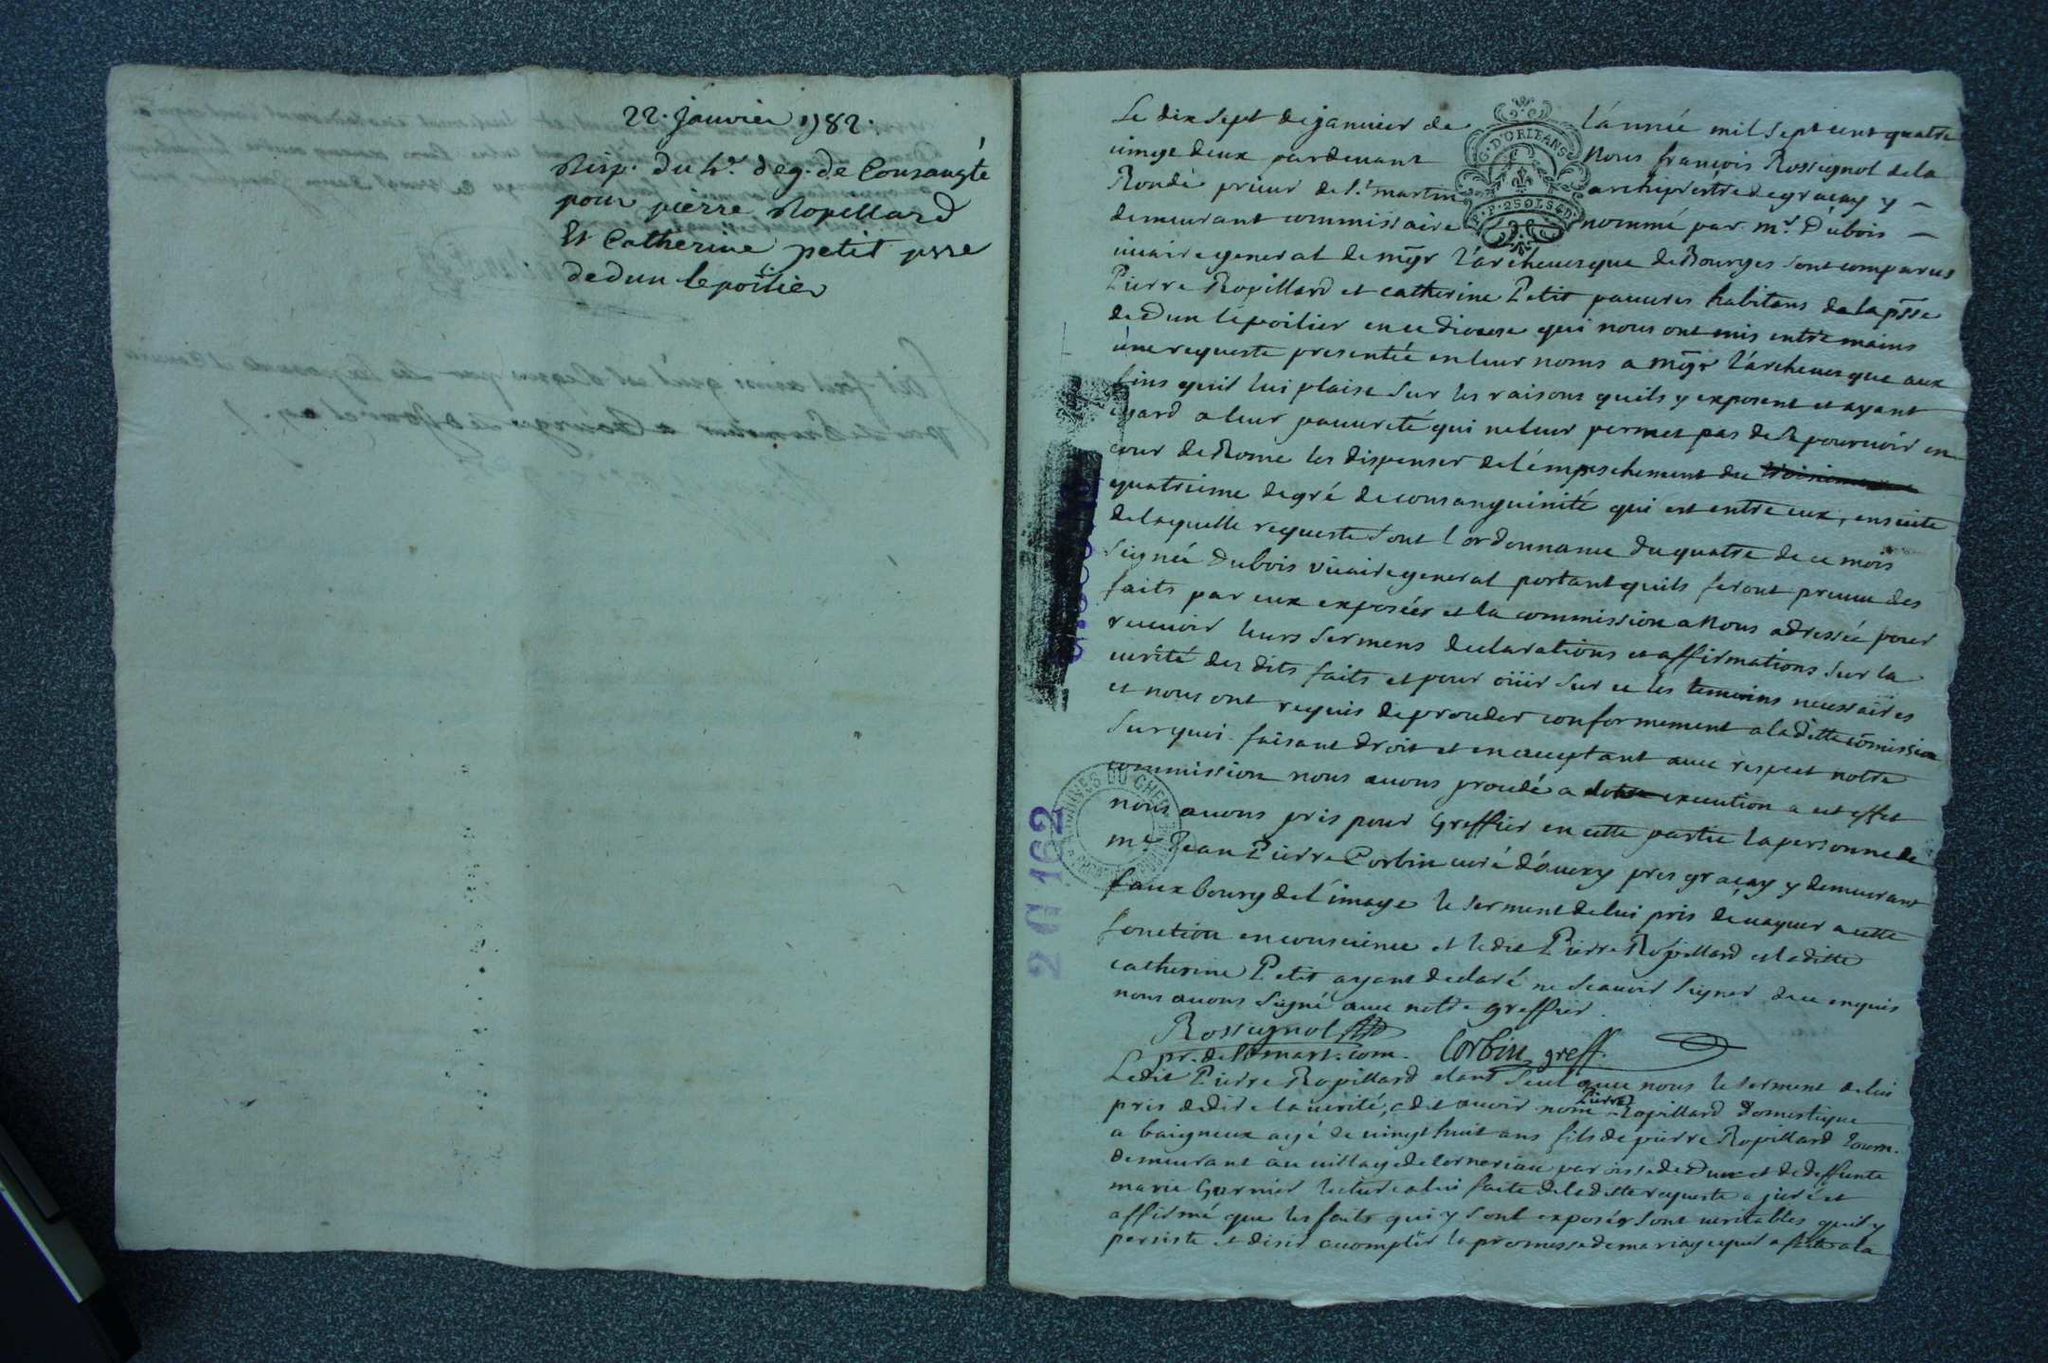 22. janvier 1782.
Disp. du 4e. deg. de Consangté
pour pierre Ropillard
Et Catherine petit psse
de dun le poilier
Le dix sept de janvier de l'année mil sept cent quatre
vingt deux pardevant Nous françois Rossignol de la
Rondé prieur de St. martin archiprêtré de graçay y
demeurant commissaire nommé par mr. Dubois
vicaire general de mgr l'archevesque de Bourges sont comparus
Pierre Ropillard et catherine Petit pauvres habitans de la psse
de Dun le poilier en ce diocese qui nous ont mis entre mains
une requeste presentée en leur noms a mgr l'archevesque aux
fins quil lui plaise sur les raisons quils y exposent et ayant
egard a leur pauvreté qui ne leur permet pas de se pourvoir en
cour de Rome les dispenser de l'empeschement du
quatrieme degré de consanguinité qui est entre eux, ensuite
de laquelle requeste sont l'ordonnance du quatre de ce mois
signée Dubois vicaire general portant quils feront preuve des
faits par eux exposées et la commission a Nous adressée pour
recevoir leurs sermens declarations et affirmations sur la
verité des dits faits et pour oüir sur ce les temoins necessaires
et nous ont requis de proceder conformement a la ditte comission
surquoi faisant droit et en acceptant avec respect notre
commission nous avons procedé a execution a cet effet
nous avons pris pour Greffier en cette partie la personne de
me. Jean Pierre Corbin curé d'avery pres graçay y demeurant
faux bourg de l'image le serment de lui pris de vaquer a cette
fonction en conscience et le dit Pierre Ropillard et la ditte
catherine Petit ayant declaré ne sçavoir signer de ce enquis
nous avons signé avec notre greffier.
Rossignol
pr. de st mart. com. Corbin greff.
Ledit Pierre Ropillard etant seul avec nous le serment de lui
pris de dire la verité, a dit avoir nom Pierre Ropillard domestique
a baigneux agé de vingt huit ans fils de pierre Ropillard Journ.
demeurant au village de parroisse de Dun et de deffunte
marie Garnier lecture a lui faite de la ditte requeste a juré et
affirmé que les faits qui y sont exposés sont veritables quil y
persiste et desire accomplir la promesse de mariage quil a faite a la
G. D'ORLEANS
ARCHIVES DU CHER
2 G 162